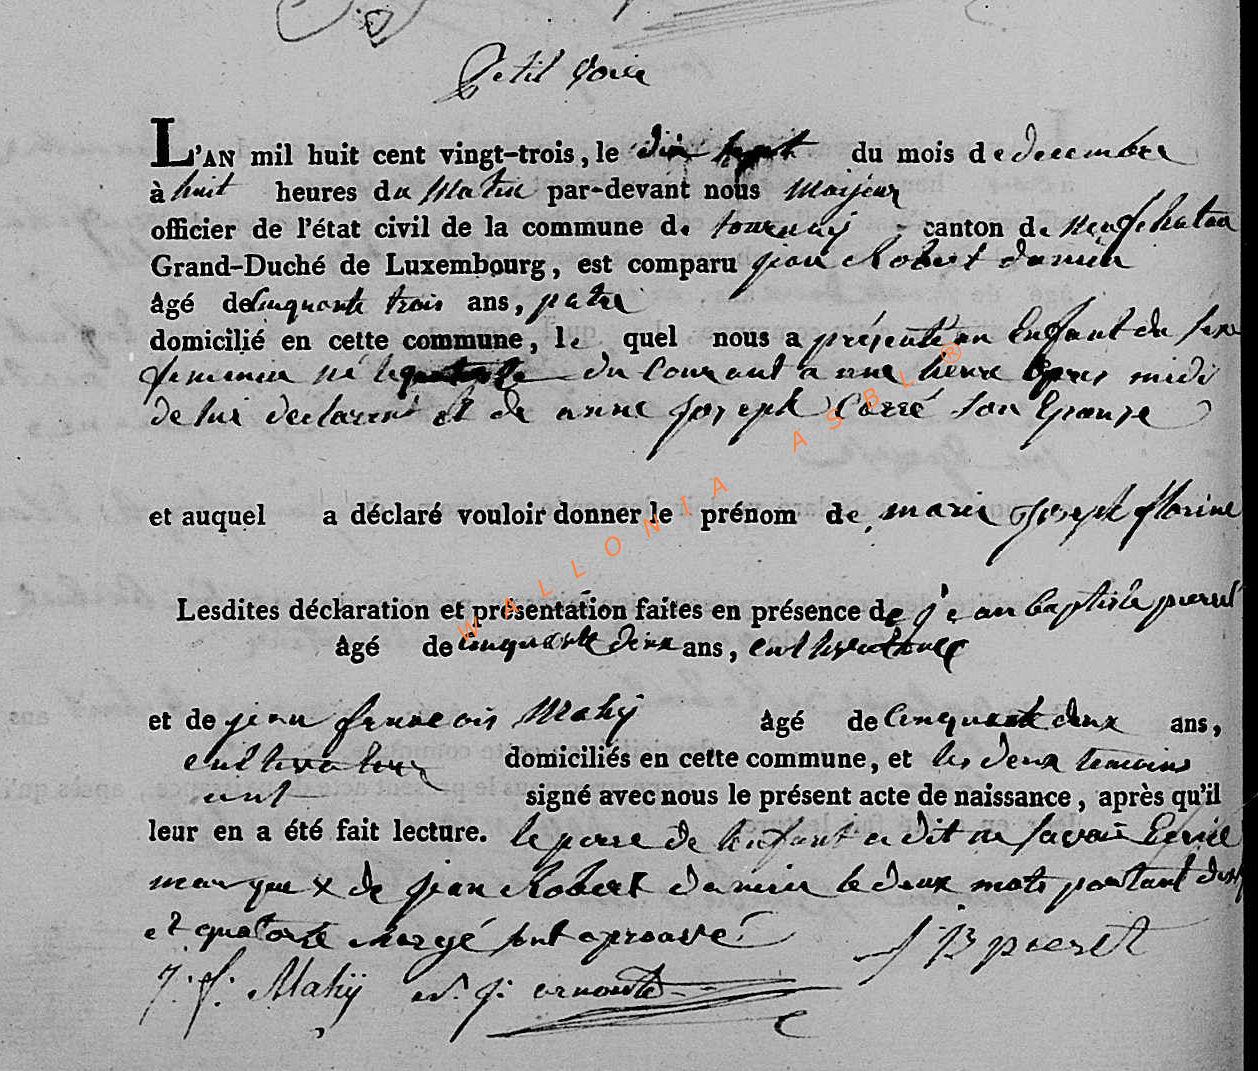 Petit Voir
L'AN mil huit cent vingt-trois, le dix sept du mois de decembre
à huit heures du Matin par-devant nous Maijeur
officier de l'état civil de la commune de tournay, canton de neufchatau
Grand-Duché de Luxembourg, est comparu jean Robert damien
âgé de cinquante trois ans, patre
domicilié en cette commune, le quel nous a présenté un Enfant du sexe
feminin né le quatorze du Courant a une heure apres midi
de lui declarent et de anne joseph Corré son Epouse
et auquel a déclaré vouloir donner le prénom de marie joseph florine
Lesdites déclaration et présentation faites en présence de jean baptiste pieret
âgé de cinquante deux ans, cultivateur
et de jean francois Mahÿ âgé de cinquante deux ans,
cultivateur domiciliés en cette commune, et les deux temoins
ont signé avec nous le présent acte de naissance, après qu'il
leur en a été fait lecture. le pere de lenfant a dit ne savoir Ecrire
marque x de jean Robert damien le deux mots portant dix sept
et quatorze chargé sont aprouvé
J B pieret
J: f: Mahÿ
WALLONIA ASBL ®